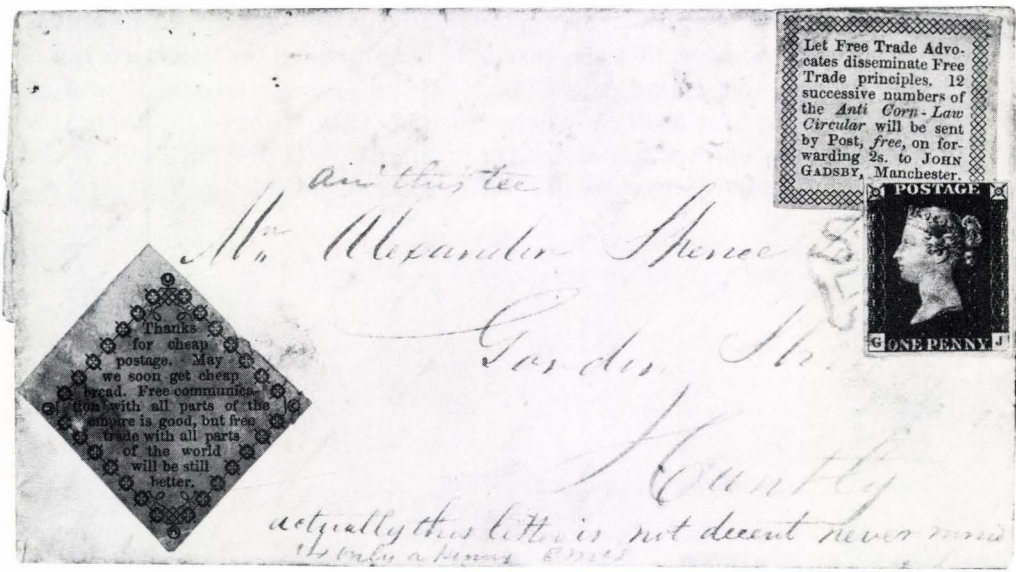 Let Free Trade Advo-
cates disseminate Free
Trade principles. 12
successive numbers of
the Anti Corn-Law
Circular will be sent
by Post, free, on for-
warding 2s. to JOHN
GADSBY, Manchester.
POSTAGE
G ONE PENNY J
Mr Alexander Spence
Huntly
Thanks
for cheap
postage. May
we soon get cheap
bread. Free communica-
tion with all parts of the
empire is good, but free
trade with all parts
of the world
will be still
better.
actually this letter is not decent never mind
its only a penny